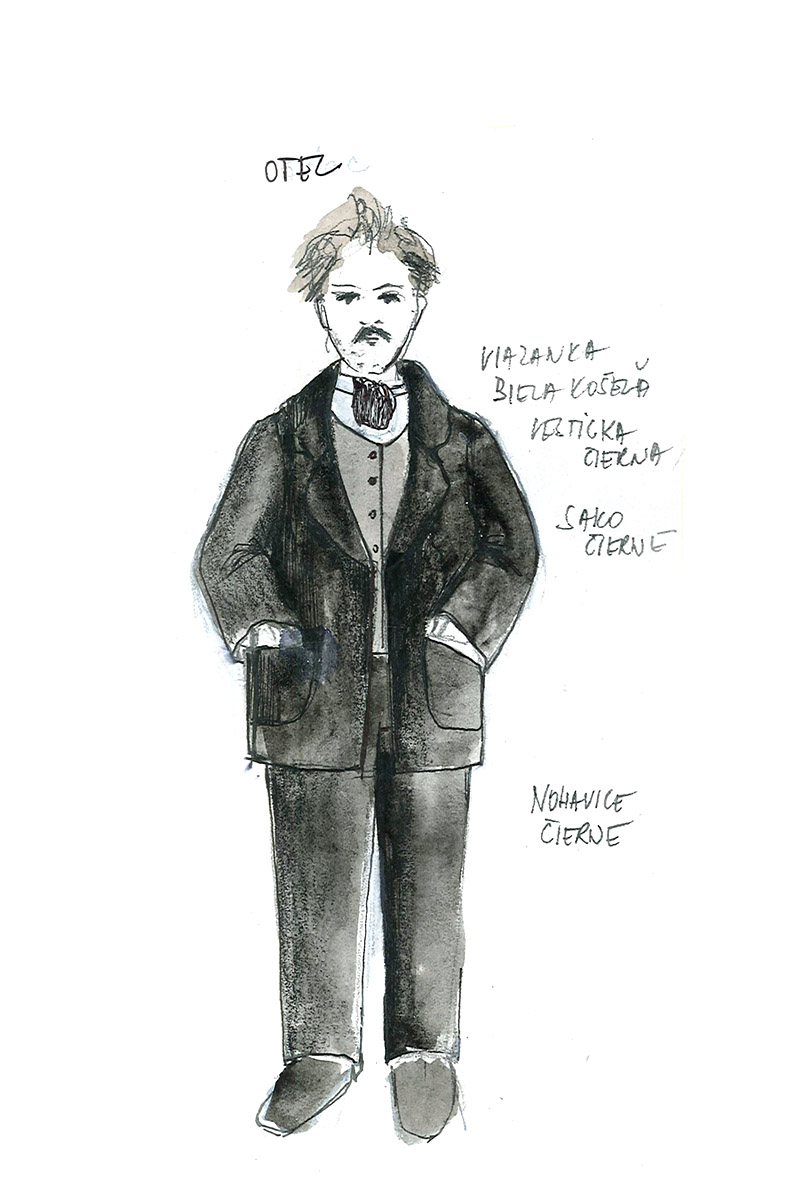 OTEC
VIAZANKA
BIELA KOŠEĽA
VESTIČKA
ČIERNA
SAKO
ČIERNE
NOHAVICE
ČIERNE